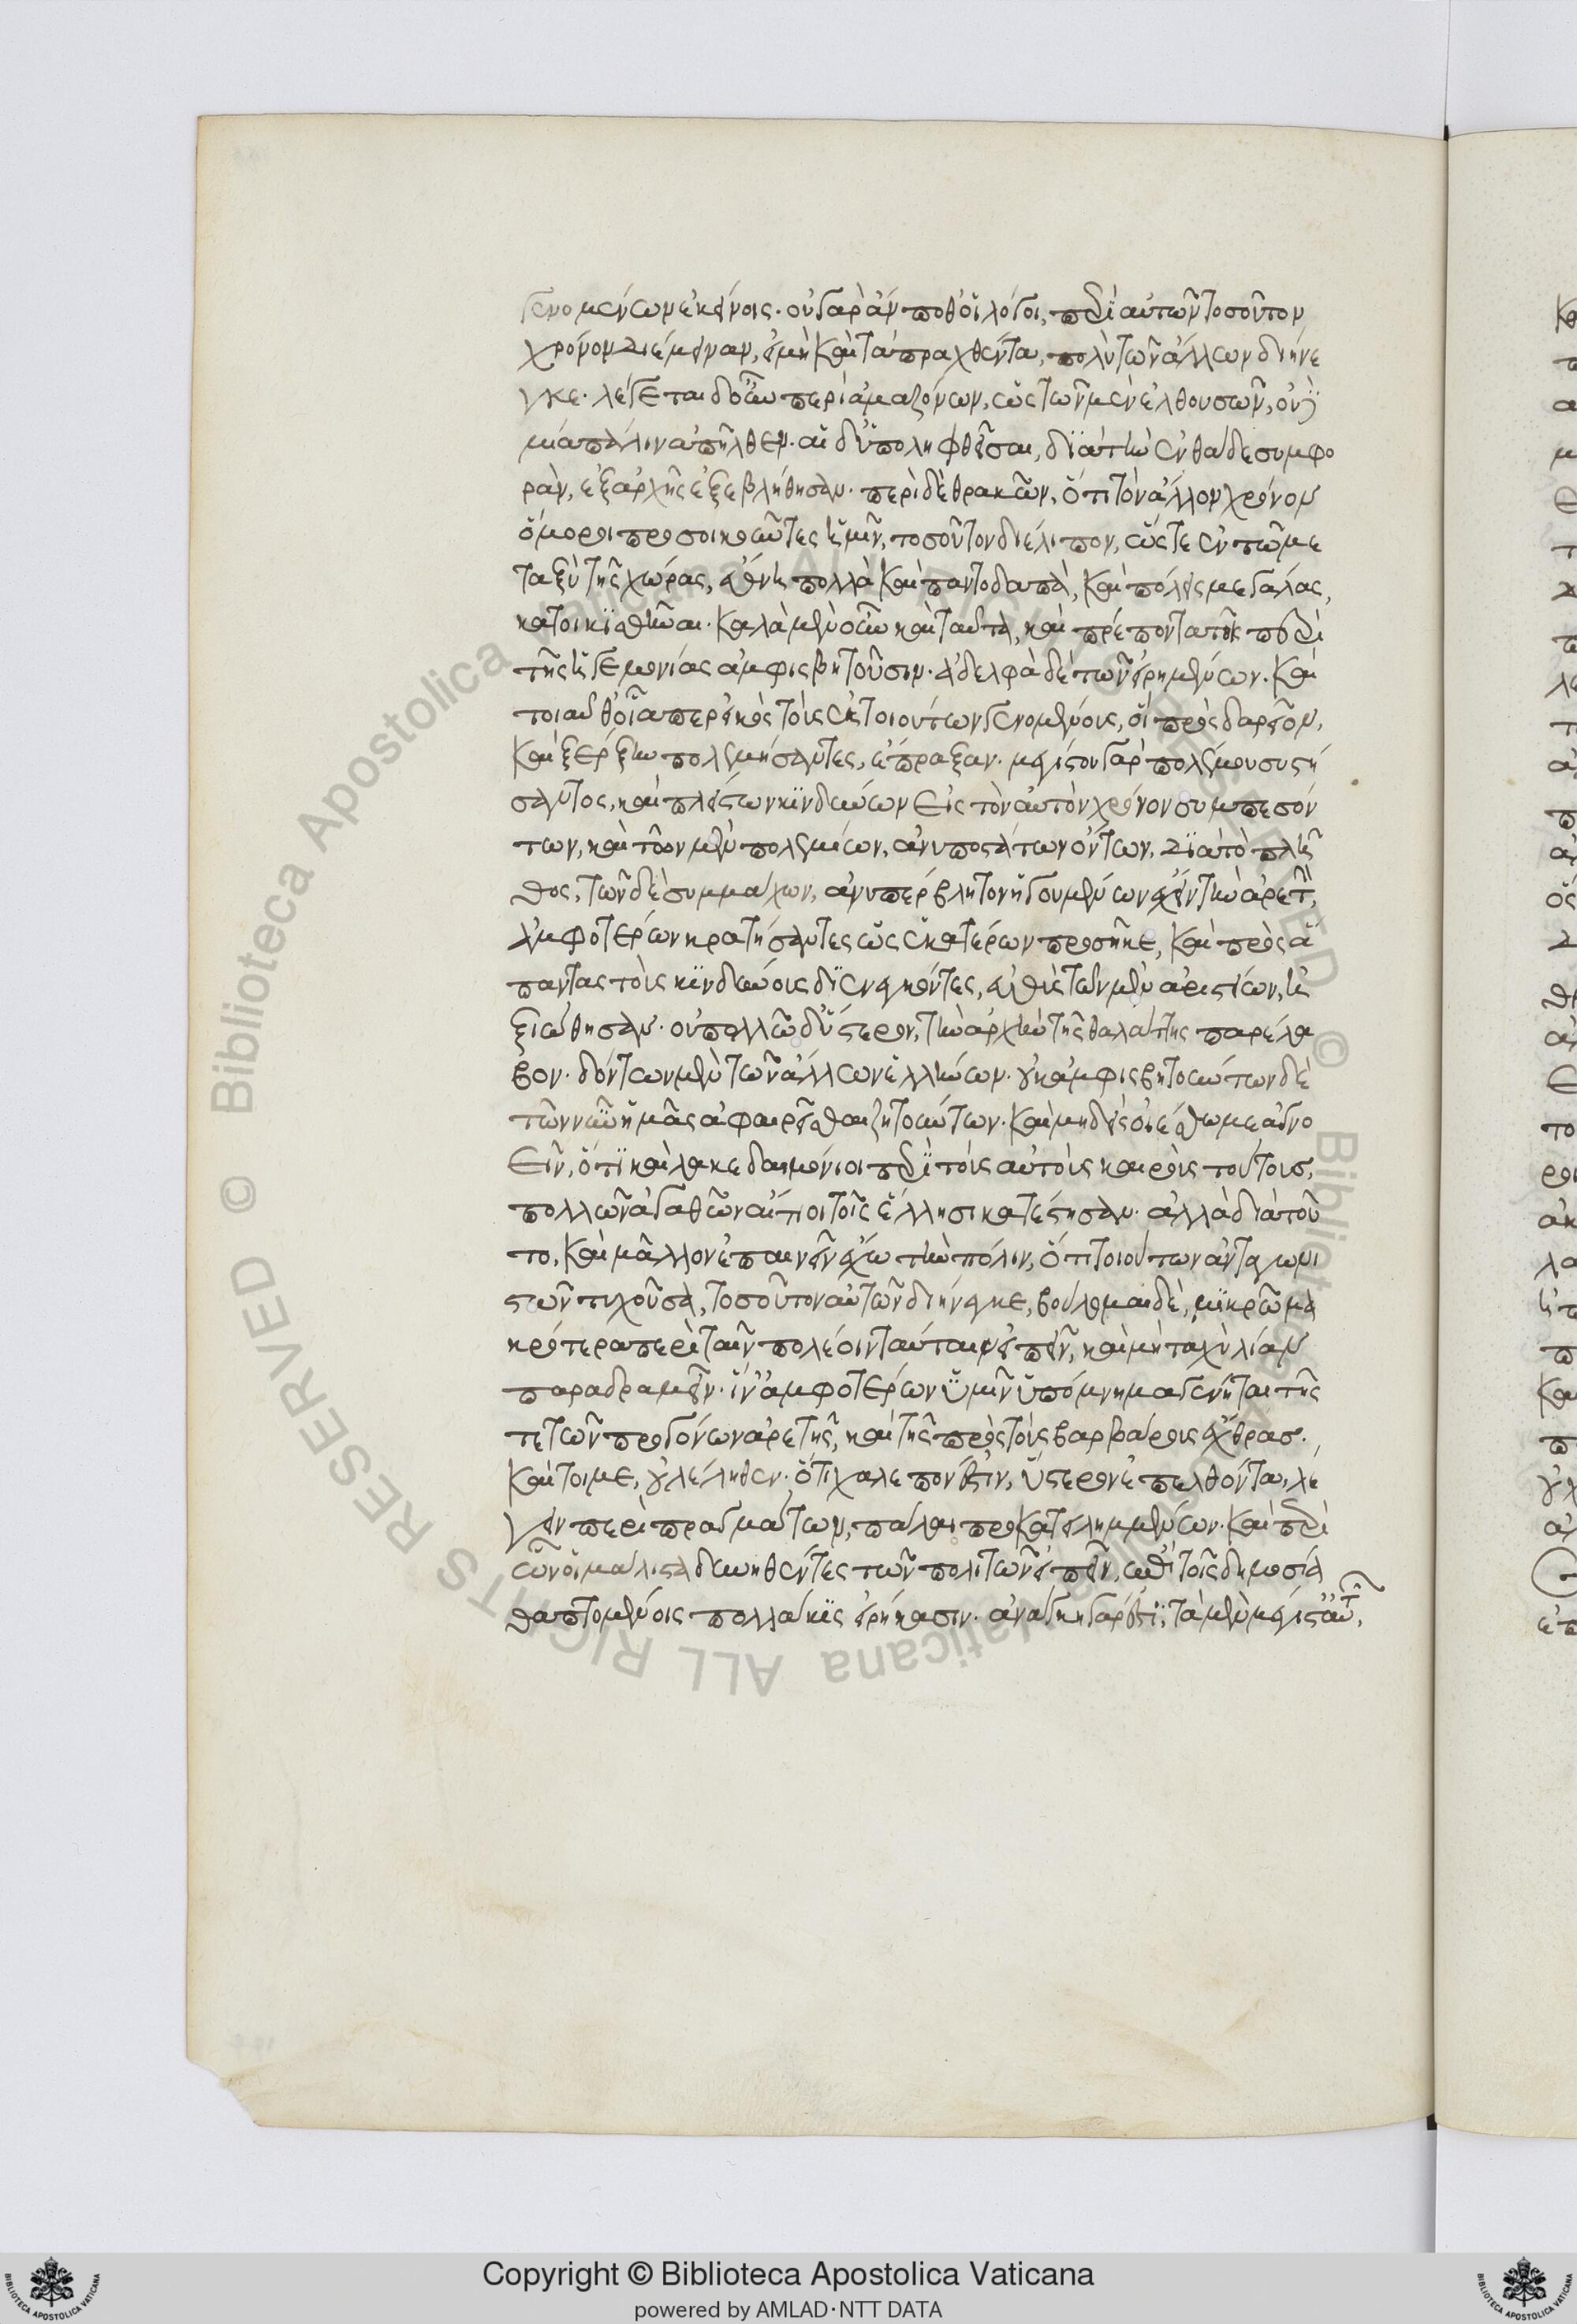 γενομένων ἐκείνοις· οὐ γὰρ ἄν ποθ' οἱ λόγοι, περὶ αὐτῶν τοσοῦτον
χρόνον διέμειναν, εἰ μὴ καὶ τὰ πραχθέντα, πολὺ τῶν ἄλλων διήνε
γκε. λέγεται δ' οὖν περὶ ἀμαζόνων, ὡς τῶν μὲν ἐλθουσῶν, οὐδε
μία πάλιν ἀπῆλθεν. αἱ δ' ὑπολειφθεῖσαι, διὰ τὴν ἐνθάδε συμφο
ράν, ἐξ ἀρχῆς ἐξεβλήθησαν. περὶ δὲ θρακῶν, ὅτι τὸν ἄλλον χρόνον
ὅμοροι προσοικοῦντες ἡμῖν, τοσοῦτον διέλιπον, ὥστε ἐν τῶ με
ταξὺ τῆς χώρας, ἔθνη πολλὰ καὶ παντοδαπὰ, καὶ πόλεις μεγάλας,
κατοικισθῆναι. καλὰ μὲν οὖν καὶ ταῦτα, καὶ πρέποντα τοῖς περὶ
τῆς ἡγεμονίας ἀμφισβητοῦσιν. ἀδελφὰ δὲ τῶν εἰρημένων. καὶ
τοιαῦθ' οἷα περ εἰκὸς τοὺς ἐκ τοιούτων γενομένους, οἱ πρὸς δαρεῖον,
καὶ ξέρξην πολεμήσαντες, ἔπραξαν. μεγίστου γὰρ πολέμου συστή
σαντος, καὶ πλείστων κινδύνων εἰς τὸν αὐτὸν χρόνον συμπεσόν
των, καὶ τῶν μὲν πολεμίων, ἀνυποστάτων ὄντων, διὰ τὸ πλῆ
θος, τῶν δὲ συμμάχων, ἀνυπέρβλητον ἡγουμένων ἔχειν τὴν ἀρετὴν,
ἀμφοτέρων κρατήσαντες ὡς ἑκατέρων προσῆκε, καὶ πρὸς ἅ
παντας τοὺς κινδύνους διενεγκόντες, εὐθὺς τῶν μὲν ἀριστείων, ἠ
ξιώθησαν. οὐ πολλῶ δ' ὕστερον, τὴν ἀρχὴν τῆς θαλάττης παρέλα
βον. δόντων μὲν τῶν ἄλλων ἑλλήνων. οὐκ ἀμφισβητούντων δὲ
τῶν νῦν ἡμᾶς ἀφαιρεῖσθαι ζητούντων. καὶ μηδεὶς οἰέσθω με ἀγνο
εῖν, ὅτι καὶ λακεδαιμόνιοι περὶ τοὺς αὐτοὺς καιροὺς τούτους,
πολλῶν ἀγαθῶν αἴτιοι τοῖς ἕλλησι κατέστησαν. ἀλλὰ διὰ τοῦ
το, καὶ μᾶλλον ἐπαινεῖν ἔχω τὴν πόλιν, ὅτι τοιούτων ἀνταγωνι
στῶν τυχοῦσα, τοσοῦτον αὐτῶν διήνεγκε, βούλομαι δὲ, μικρῶ μα
κρότερα περὶ ταῖν πολέοιν ταύταιν εἰπεῖν, καὶ μὴ ταχὺ λίαν
παραδραμεῖν. ἵν' ἀμφοτέρων ὑμῖν ὑπόμνημα γένηται τῆς
τε τῶν προγόνων ἀρετῆς, καὶ τῆς πρὸς τοὺς βαρβάρους ἔχθρας.
καί τοι με, οὐ λέληθεν. ὅτι χαλεπόν ἐστιν, ὕστερον ἐπελθόντα, λέ
γειν περὶ πραγμάτων, πάλαι προκατειλημμένων. καὶ περὶ
ὧν οἱ μάλιστα δυνηθέντες τῶν πολιτῶν εἰπεῖν, ἐπὶ τοῖς δημοσία
θαπτομένοις πολλάκις εἰρήκασιν. ἀνάγκη γάρ ἐστι, τὰ μὲν μέγιστ' αὐτῶν,